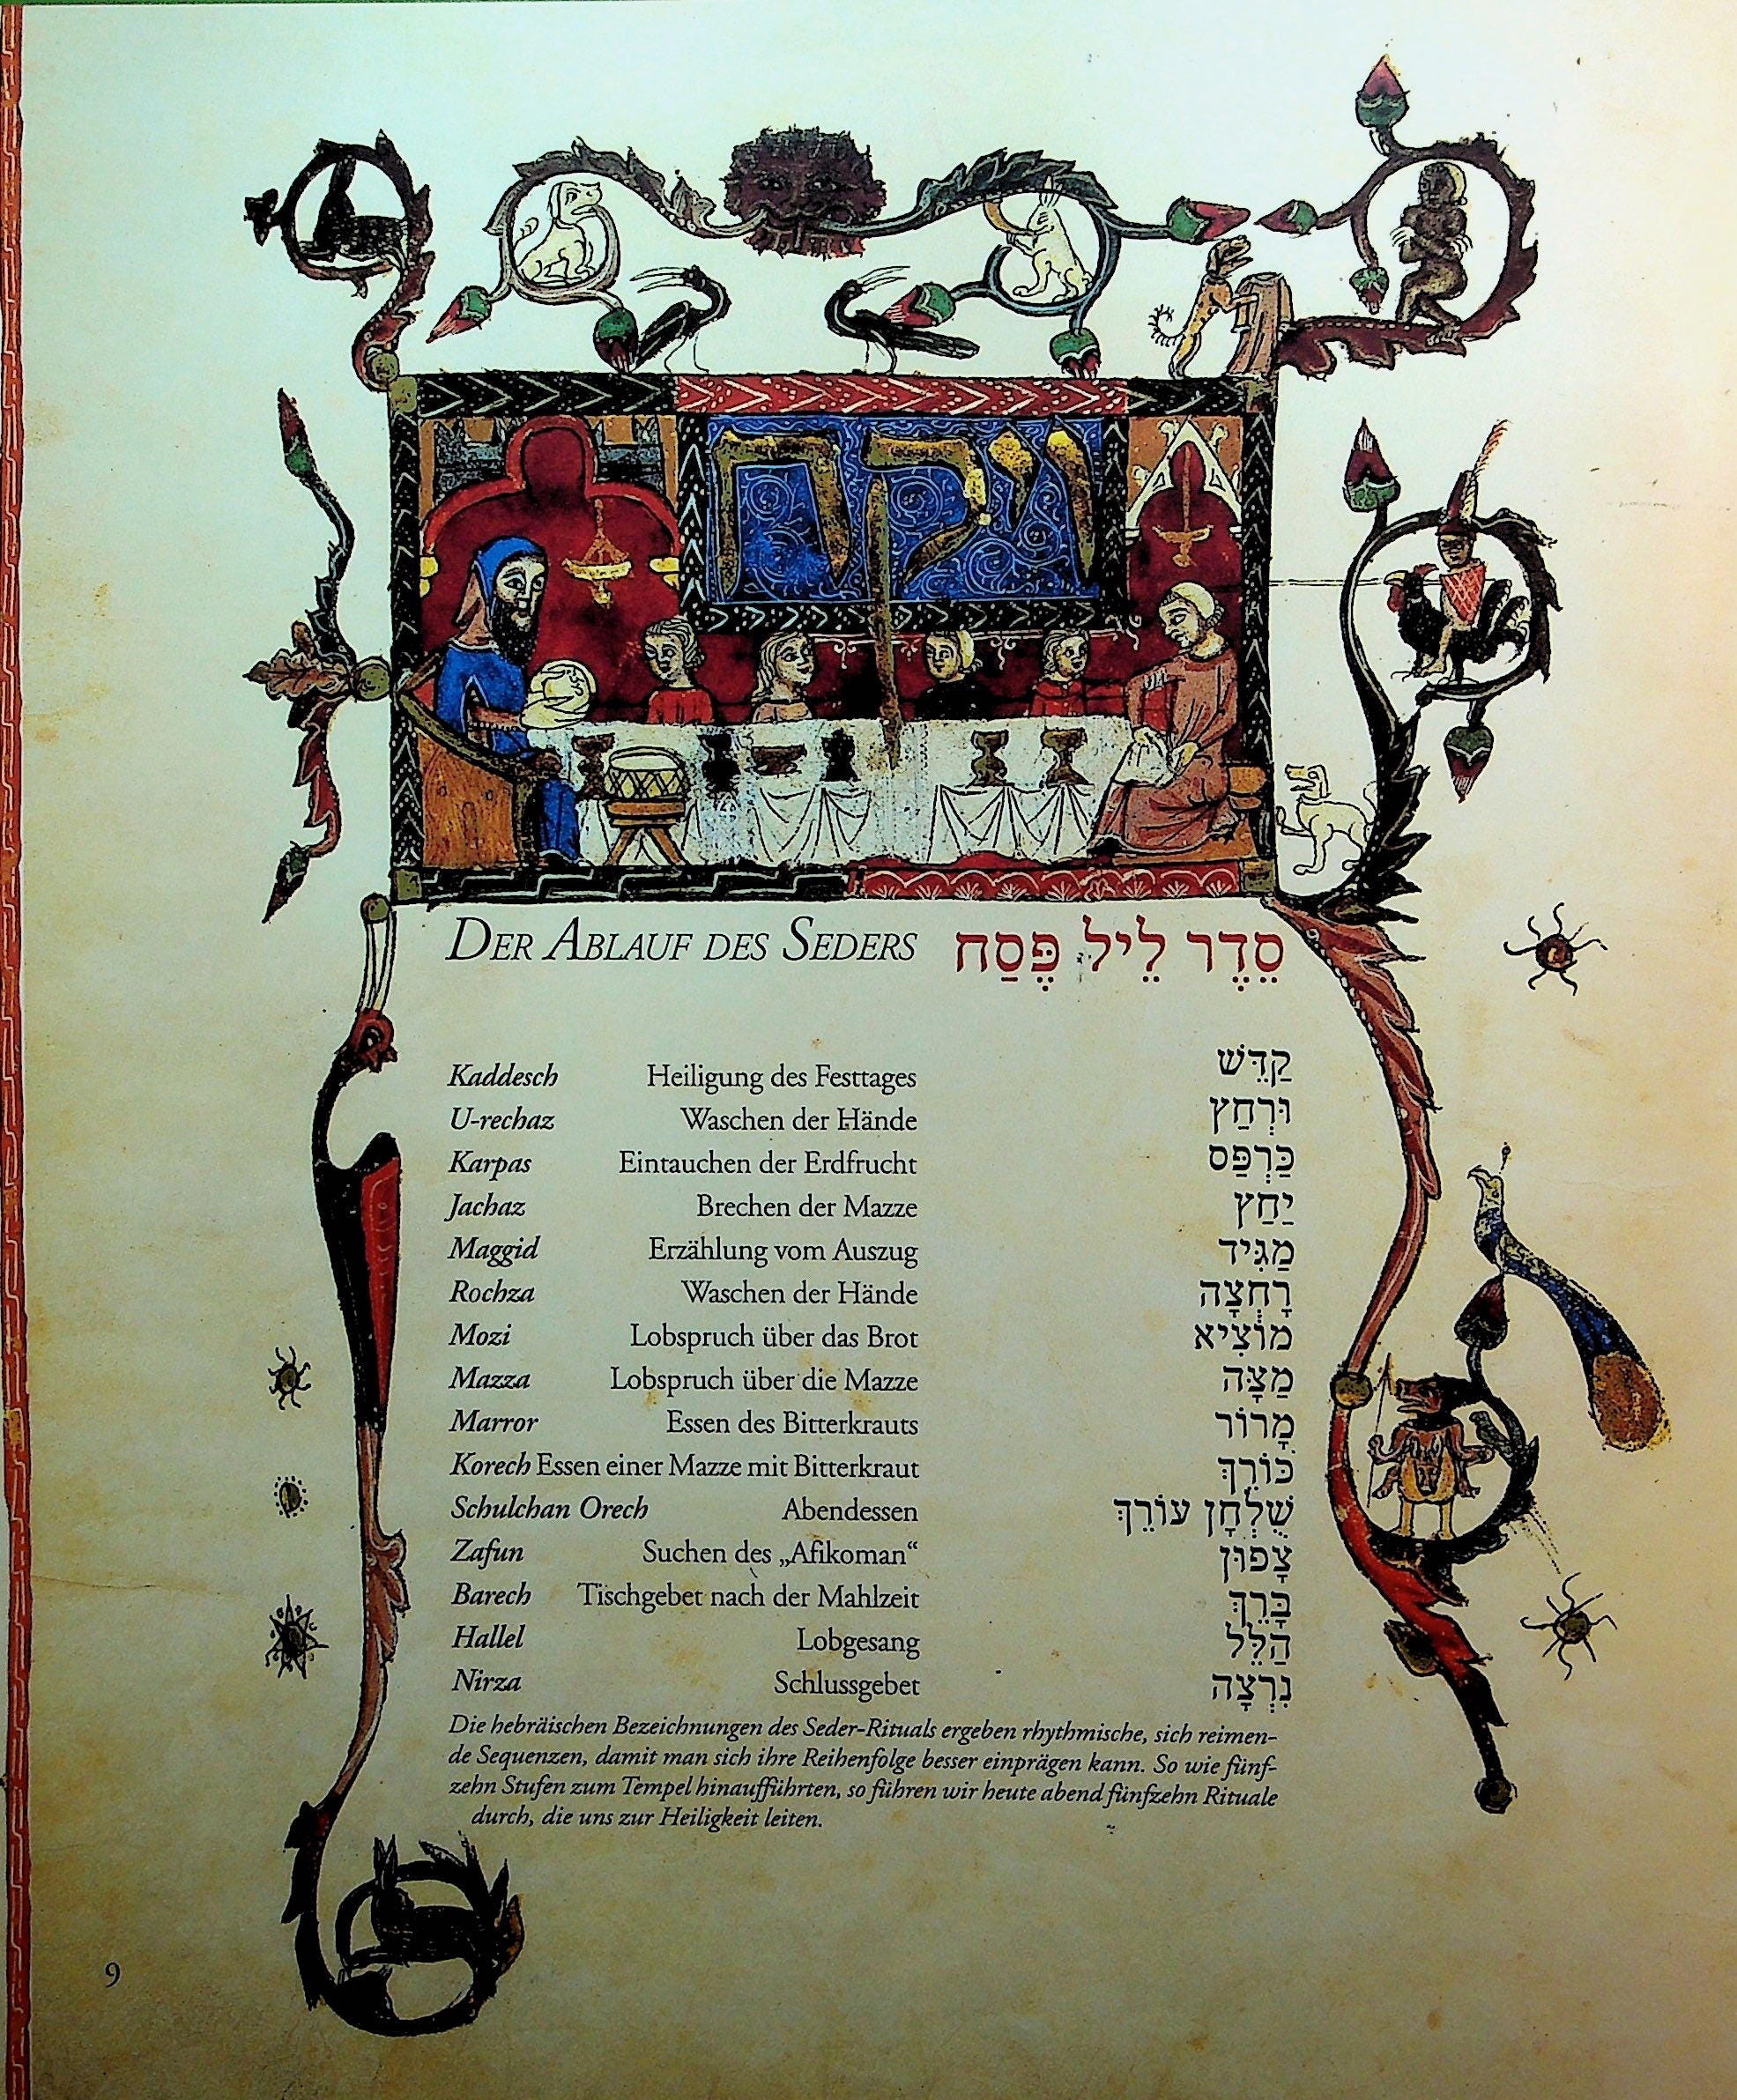 ויקח
DER ABLAUF DES SEDERS סֵדֶר לֵיל פֶּסַח
Kaddesch Heiligung des Festtages קַדֵּשׁ
U-rechaz Waschen der Hände וּרְחַץ
Karpas Eintauchen der Erdfrucht כַּרְפַּס
Jachaz Brechen der Mazze יַחַץ
Maggid Erzählung vom Auszug מַגִּיד
Rochza Waschen der Hände רָחְצָה
Mozi Lobspruch über das Brot מוֹצִיא
Mazza Lobspruch über die Mazze מַצָּה
Marror Essen des Bitterkrauts מָרוֹר
Korech Essen einer Mazze mit Bitterkraut כּוֹרֵךְ
Schulchan Orech Abendessen שֻׁלְחָן עוֹרֵךְ
Zafun Suchen des „Afikoman“ צָפוּן
Barech Tischgebet nach der Mahlzeit בָּרֵךְ
Hallel Lobgesang הַלֵּל
Nirza Schlussgebet נִרְצָה
Die hebräischen Bezeichnungen des Seder-Rituals ergeben rhythmische, sich reimen-
de Sequenzen, damit man sich ihre Reihenfolge besser einprägen kann. So wie fünf-
zehn Stufen zum Tempel hinaufführten, so führen wir heute abend fünfzehn Rituale
durch, die uns zur Heiligkeit leiten.
9